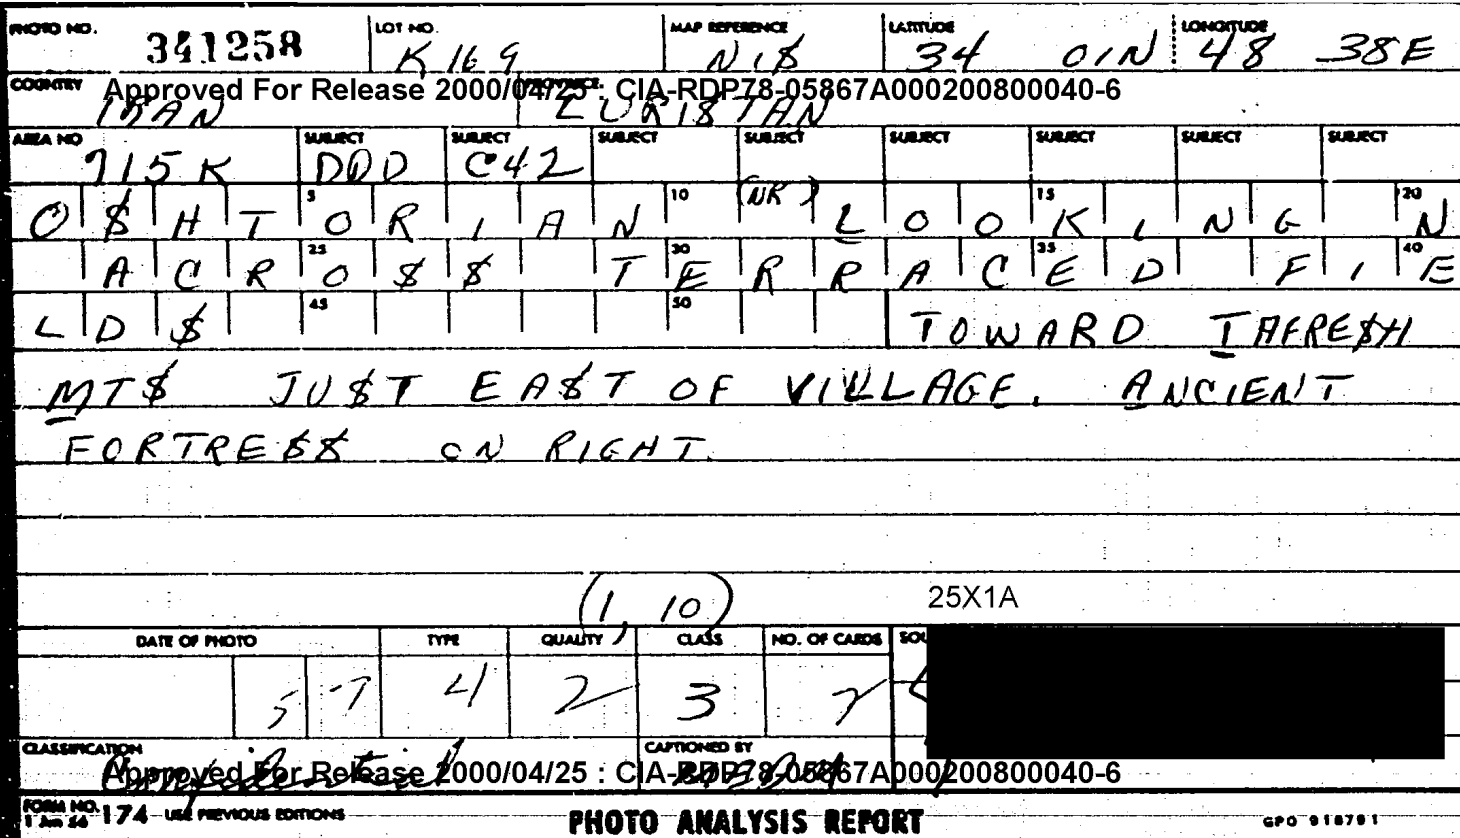 PHOTO NO. 341258 LOT NO. K169 MAP REFERENCE NI$ LATITUDE 34 01N LONGITUDE 48 38E
COUNTRY IRAN PROVINCE LURI$TAN
Approved For Release 2000/04/25 : CIA-RDP78-05867A000200800040-6
AREA NO 715K SUBJECT DOD SUBJECT C42 SUBJECT SUBJECT SUBJECT SUBJECT SUBJECT SUBJECT
O$HTORIAN (NR) LOOKING N
5 10 15 20
ACRO$$ TERRACED FIE
25 30 35 40
LD$ TOWARD TAFRE$H
45 50
MT$ JU$T EA$T OF VILLAGE. ANCIENT
FORTRE$$ ON RIGHT.
(1, 10) 25X1A
DATE OF PHOTO TYPE QUALITY CLASS NO. OF CARDS
57 4 2 3 2
CLASSIFICATION Confidential CAPTIONED BY
Approved For Release 2000/04/25 : CIA-RDP78-05867A000200800040-6
FORM NO. 174 USE PREVIOUS EDITIONS PHOTO ANALYSIS REPORT GPO 918791
1 Jan 56